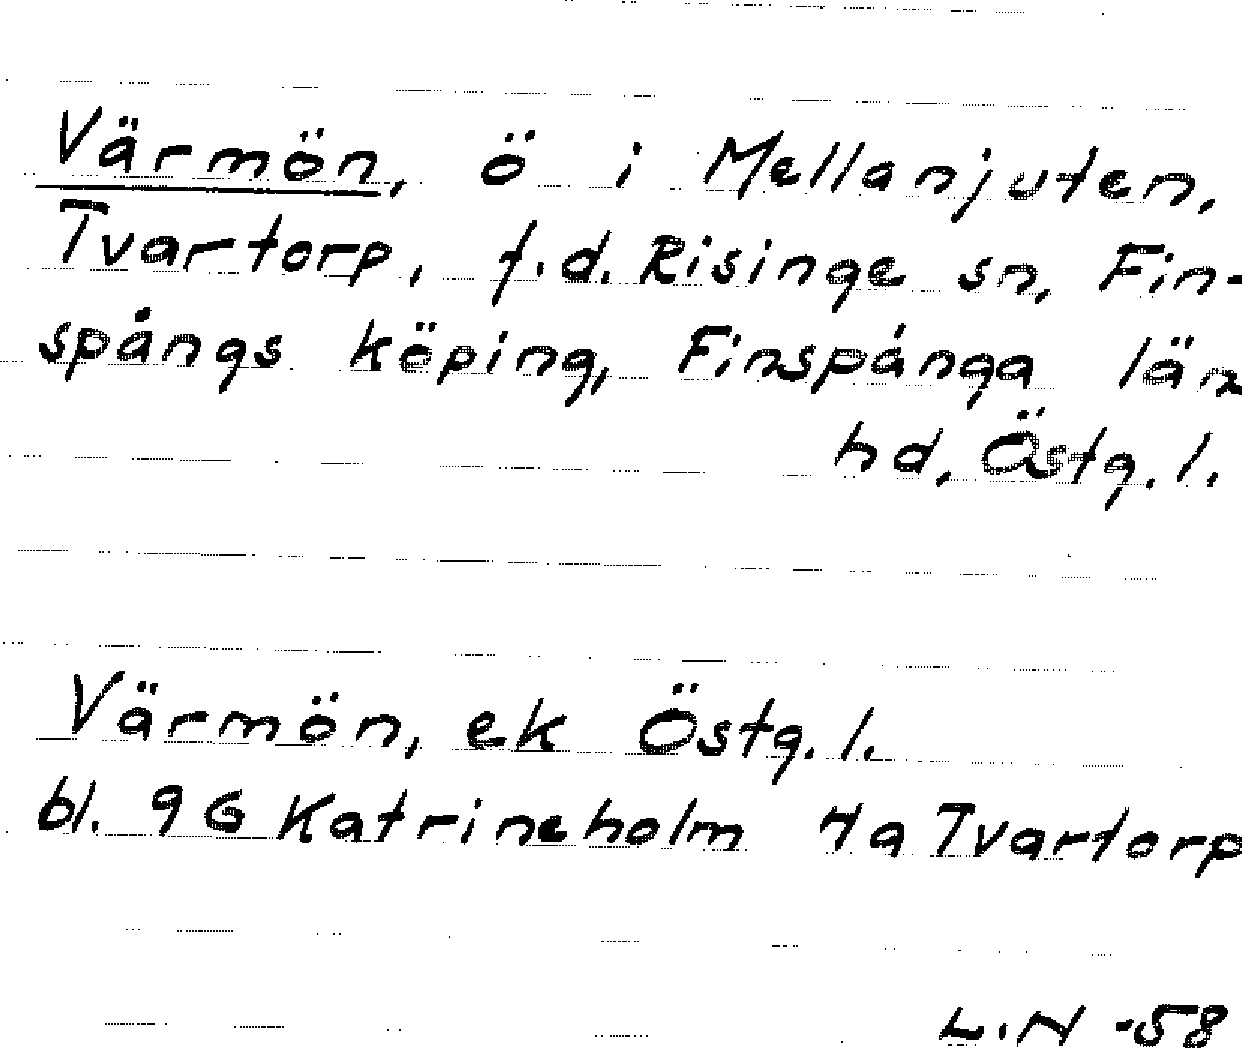 Värmön, ö i Mellanjuten,
Tvartorp, f.d. Risinge sn, Fin-
spångs köping, Finspånga län
hd, Östg. l.
Värmön, ek Östg. l.
bl. 9G Katrineholm 4a Tvartorp
L.N -58